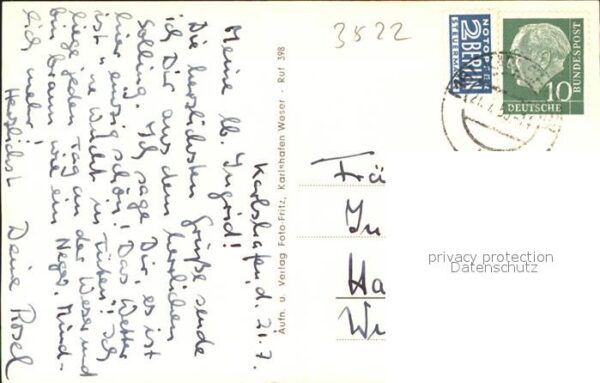 Karlshafen, d. 21.7.
Meine lb. Ingrid!
Die herzlichsten Grüße sende
ich Dir aus dem herrlichen
Solling. Ich sage Dir, es ist
hier ewig schön! Das Wetter
ist "ne Wucht in Tüten"! Ich
liege jeden Tag an der Weser und
bin braun wie ein Neger. Mind-
lich mehr!
Herzlichst
Deine Rosel
Aufn. u. Verlag Foto-Fritz, Karlshafen Weser · Ruf 398
3522
NOTOPFER
2 BERLIN
STEUERMARKE
DEUTSCHE
BUNDESPOST
10
Frä
In
Ha
We
privacy protection
Datenschutz